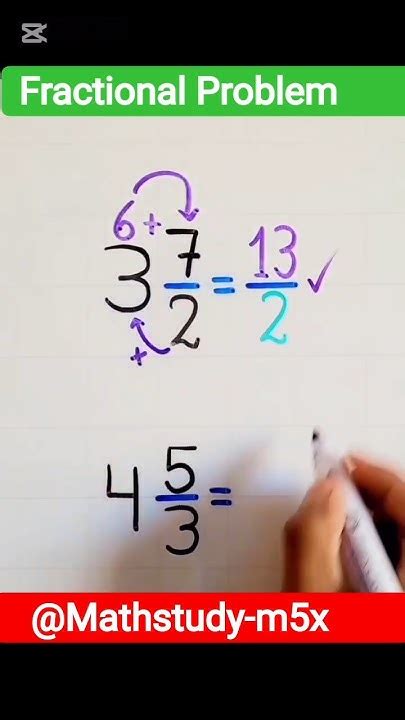 Fractional Problem
6+
3 7/2 = 13/2 ✓
+
4 5/3 =
@Mathstudy-m5x